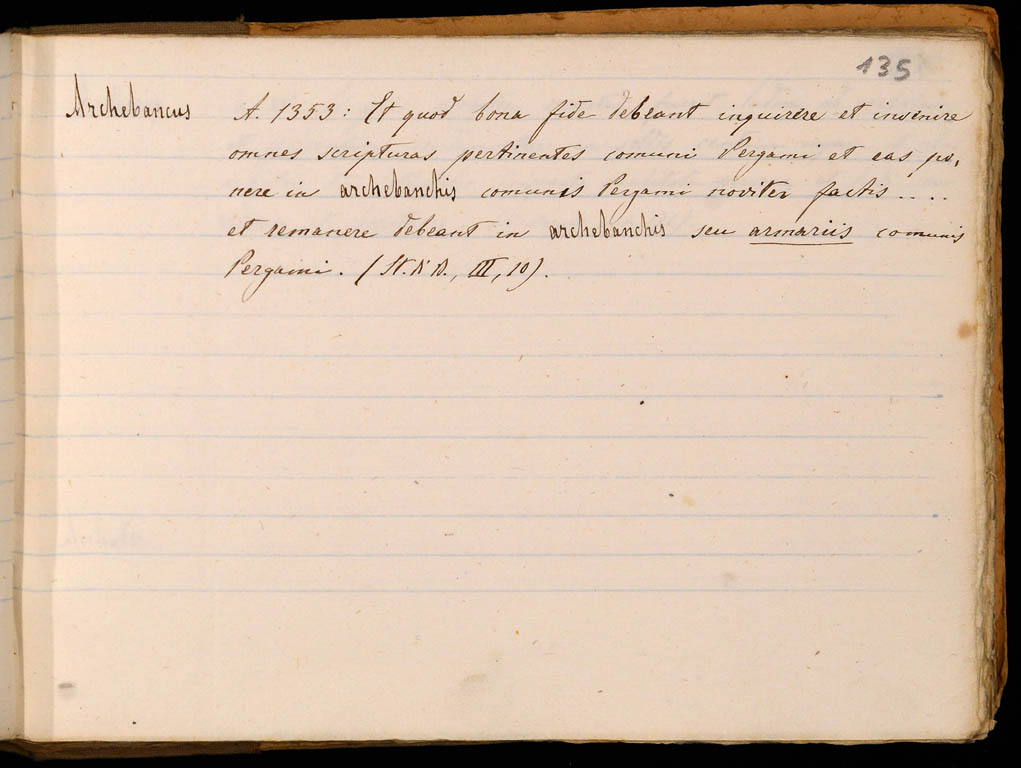 135
Archebancus A. 1353: Et quod bona fide debeant inquirere et invenire
omnes scripturas pertinentes comuni Pergami et eas po,
nere in archebanchis comunis Pergami noviter factis....
et remanere debeant in archebanchis seu armariis comunis
Pergami. (St. D. III, 10).